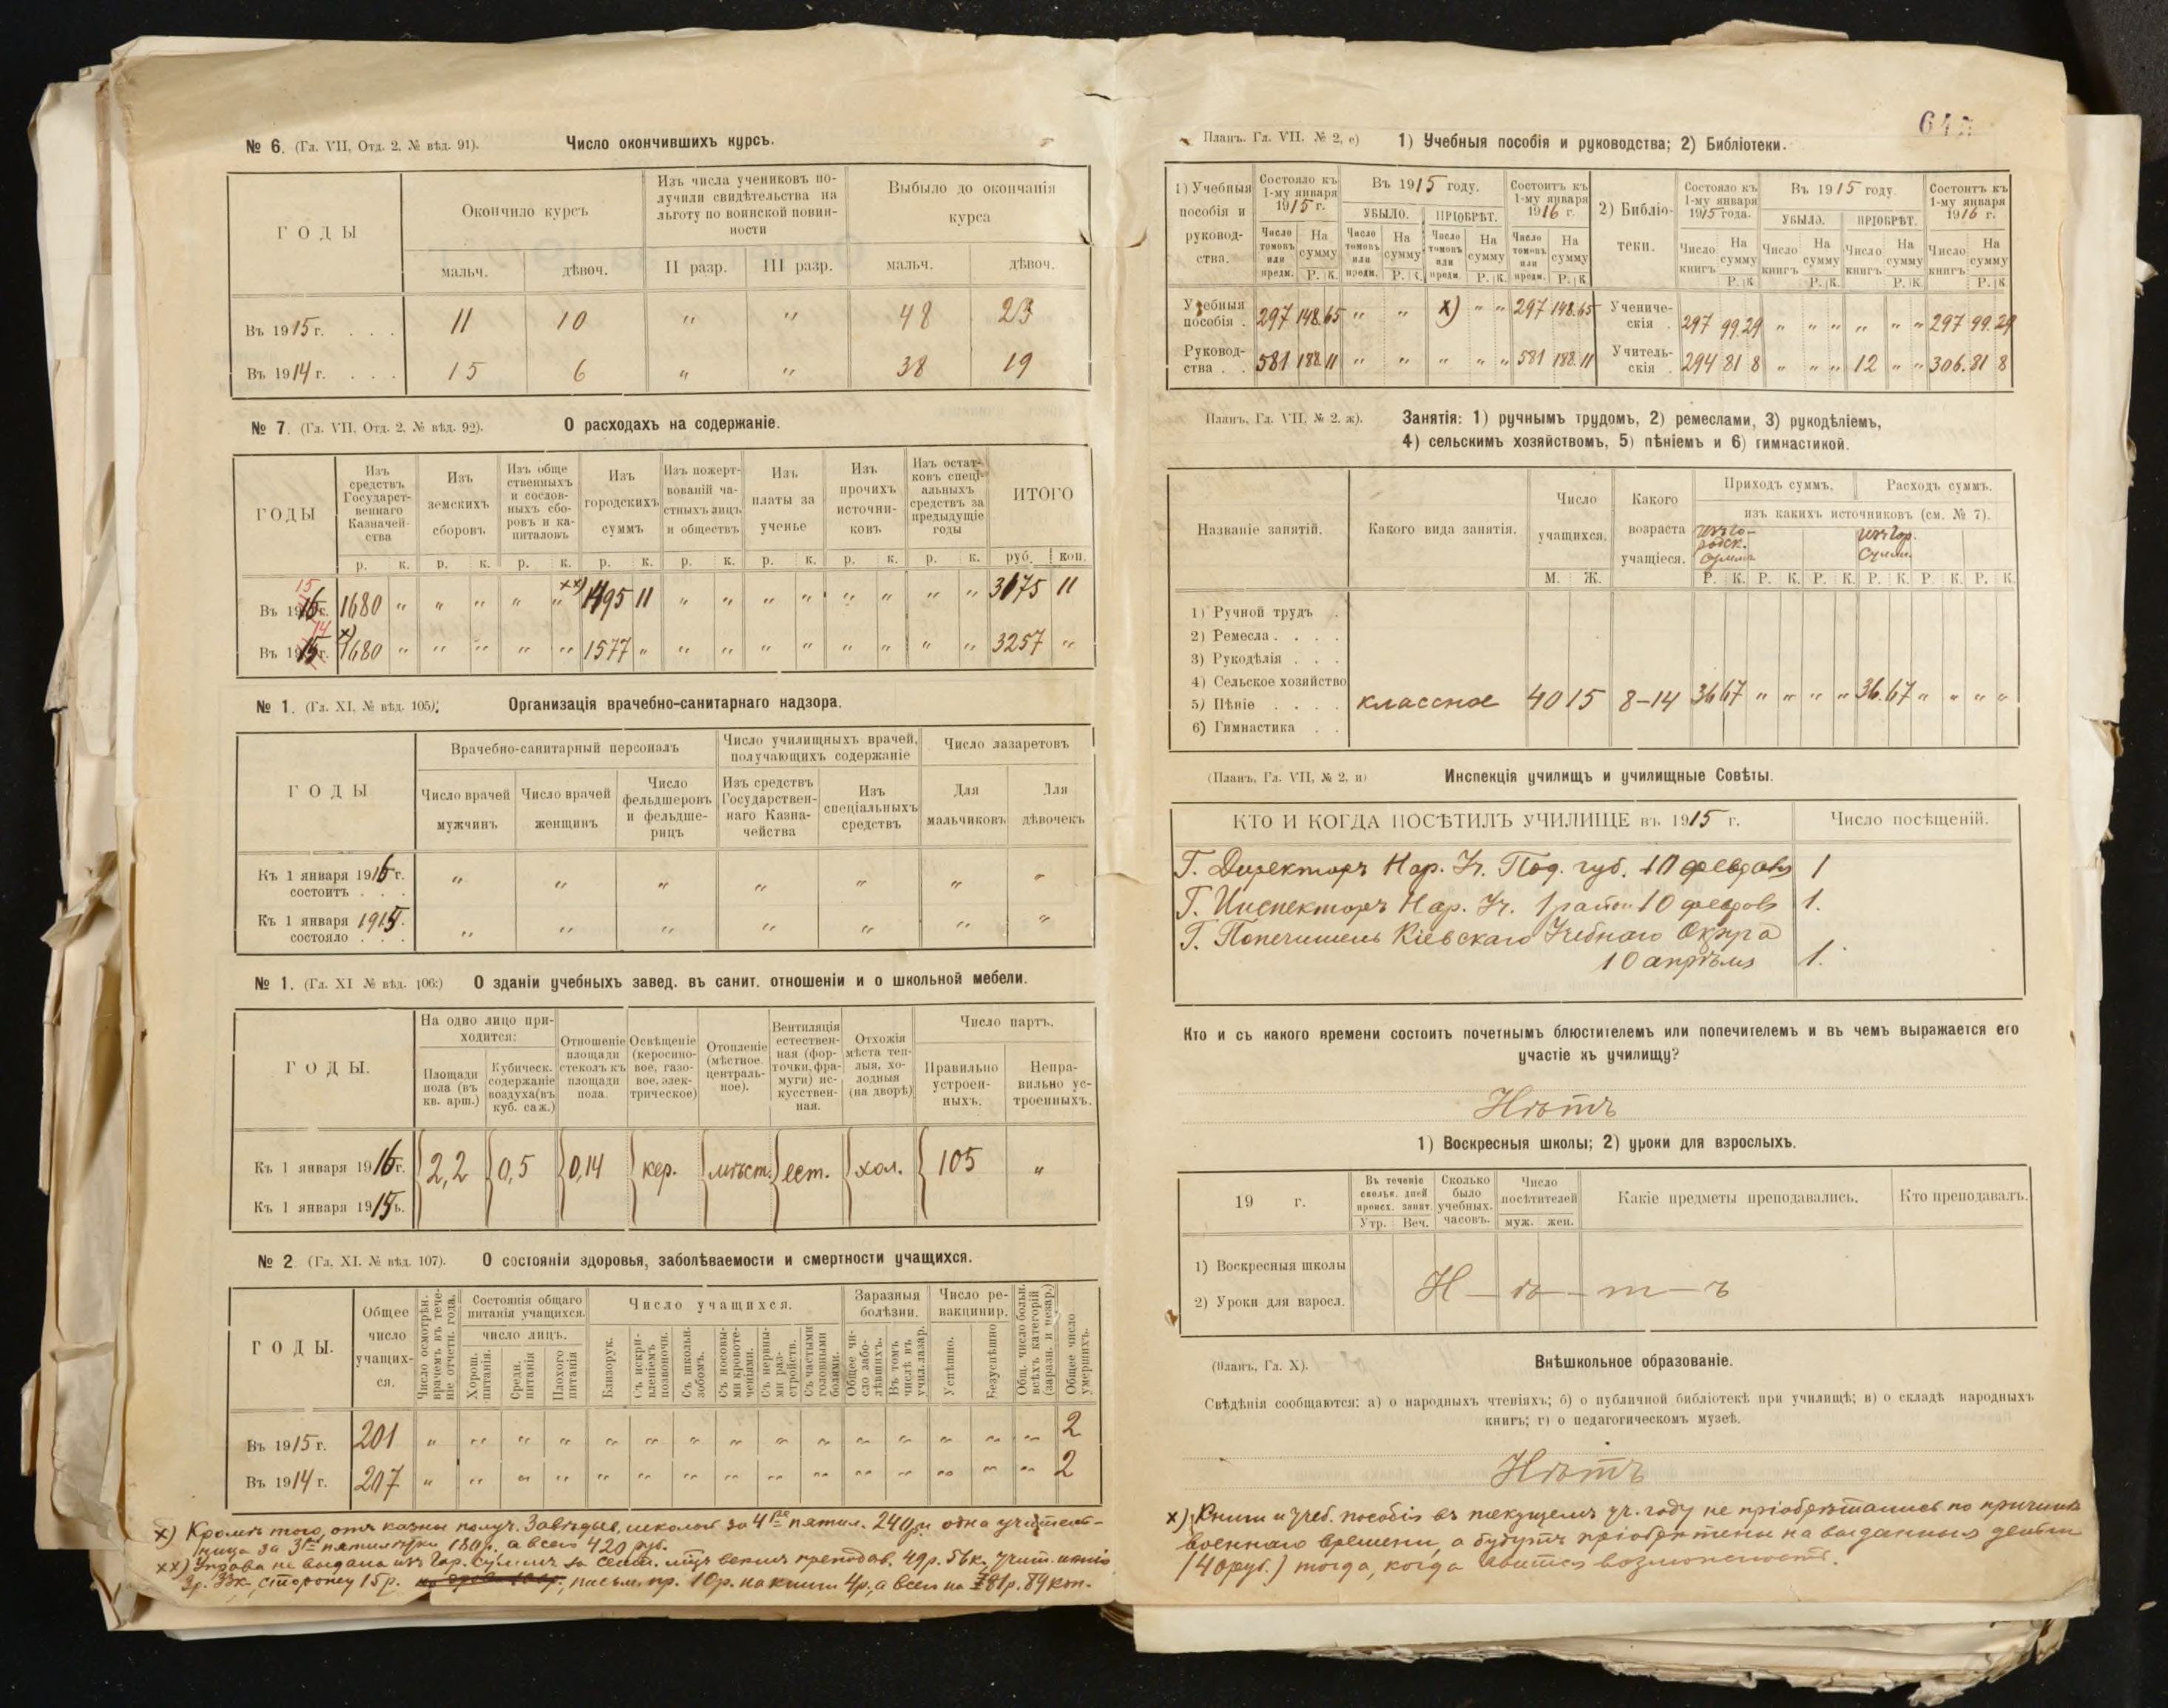 № 6. (Гл. VII, Отд. 2, № вѣд. 91). Число окончившихъ курсъ.
ГОДЫ
Окончило курсъ
Изъ числа учениковъ по-
лучили свидѣтельства на
льготу по воинской повин-
ности
Выбыло до окончанія
курса
мальч. дѣвоч. II разр. III разр. мальч. дѣвоч.
Въ 1915 г. . . . 11 10 " " 48 23
Въ 1914 г. . . . 15 6 " " 38 19
№ 7. (Гл. VII, Отд. 2, № вѣд. 92). О расходахъ на содержаніе.
ГОДЫ
Изъ
средствъ
Государст-
веннаго
Казначей-
ства
Изъ
земскихъ
сборовъ
Изъ обще
ственныхъ
и сослов-
ныхъ сбо-
ровъ и ка-
питаловъ
Изъ
городскихъ
суммъ
Изъ пожерт-
вованій ча-
стныхъ лицъ
и обществъ
Изъ
платы за
ученье
Изъ
прочихъ
источни-
ковъ
Изъ остат-
ковъ спеці-
альныхъ
средствъ за
предыдущіе
годы
ИТОГО
р. к. р. к. р. к. р. к. р. к. р. к. р. к. р. к. руб. коп.
15
Въ 1916 г. 1680 " " " " " хх) 1495 11 " " " " " " " " 3175 11
14
Въ 1915 г. х) 1680 " " " " " 1577 " " " " " " " " " 3257 "
№ 1. (Гл. XI, № вѣд. 105). Организація врачебно-санитарнаго надзора.
ГОДЫ
Врачебно-санитарный персоналъ
Число училищныхъ врачей,
получающихъ содержаніе
Число лазаретовъ
Число врачей
мужчинъ
Число врачей
женщинъ
Число
фельдшеровъ
и фельдше-
рицъ
Изъ средствъ
Государствен-
наго Казна-
чейства
Изъ
спеціальныхъ
средствъ
Для
мальчиковъ
Для
дѣвочекъ
Къ 1 января 1916 г.
состоитъ . . . " " " " " " "
Къ 1 января 1915.
состояло . . . " " " " " " "
№ 1. (Гл. XI № вѣд. 106:) О зданіи учебныхъ завед. въ санит. отношеніи и о школьной мебели.
ГОДЫ.
На одно лицо при-
ходится:
Площади
пола (въ
кв. арш.)
Кубическ.
содержаніе
воздуха (въ
куб. саж.)
Отношеніе
площади
стеколъ къ
площади
пола.
Освѣщеніе
(керосино-
вое, газо-
вое, элек-
трическое)
Отопленіе
(мѣстное,
централь-
ное).
Вентиляція
естествен-
ная (фор-
точки, фра-
муги) ис-
кусствен-
ная.
Отхожія
мѣста теп-
лыя, хо-
лодныя
(на дворѣ)
Число партъ.
Правильно
устроен-
ныхъ.
Непра-
вильно ус-
троенныхъ.
Къ 1 января 1916 г. 2,2 0,5 0,14 кер. мѣст. ест. хол. 105 "
Къ 1 января 1915 ъ.
№ 2 (Гл. XI. № вѣд. 107). О состояніи здоровья, заболѣваемости и смертности учащихся.
ГОДЫ.
Общее
число
учащих-
ся.
Число осмотрѣн.
врачемъ въ тече-
ніе отчетн. года.
Состоянія общаго
питанія учащихся.
число лицъ.
Хорош.
питанія.
Средн.
питанія
Плохого
питанія
Число учащихся.
Близорук.
Съ искри-
вленіемъ
позвоночн.
Съ школьн.
зобомъ.
Съ носовы-
ми кровоте-
ченіями.
Съ нервны-
ми раз-
стройств.
Съ частыми
головными
болями.
Заразныя
болѣзни.
Общее чи-
сло забо-
лѣвшихъ.
Въ томъ
числѣ въ
учил. лазар.
Число ре-
вакцинир.
Успѣшно.
Безуспѣшно
Общ. число больн.
всѣхъ категорій
(заразн. и незар.)
Общее число
умершихъ.
Въ 1915 г. 201 " " " " " " " " " " " " " " " 2
Въ 1914 г. 207 " " " " " " " " " " " " " " " 2
х) Кромѣ того, отъ казны получ. Завѣдыв. школой за 4-ое пятил. 240 р. и одна учитель-
ница за 3-е пятилѣтіе 180 р. а всего 420 руб.
хх) Управа не выдала изъ Гор. суммъ за преподав. 49 р. 56 к.
3 р. 33 к. сторожу 15 р. письм. пр. 10 р. на книги 4 р., а всего на 81 р. 89 коп.
647
Планъ. Гл. VII. № 2, е) 1) Учебныя пособія и руководства; 2) Библіотеки.
1) Учебныя
пособія и
руковод-
ства.
Состояло къ
1-му января
1915 г.
Въ 1915 году.
УБЫЛО. ПРІОБРѢТ.
Состоитъ къ
1-му января
1916 г.
2) Библіо-
теки.
Состояло къ
1-му января
1915 года.
Въ 1915 году.
УБЫЛО. ПРІОБРѢТ.
Состоитъ къ
1-му января
1916 г.
Число
томовъ
или
предм.
На
сумму
Р. К.
Число
томовъ
или
предм.
На
сумму
Р. К.
Число
томовъ
или
предм.
На
сумму
Р. К.
Число
томовъ
или
предм.
На
сумму
Р. К.
Число
книгъ
На
сумму
Р. К.
Число
книгъ
На
сумму
Р. К.
Число
книгъ
На
сумму
Р. К.
Число
книгъ
На
сумму
Р. К.
Учебныя
пособія . 297 148.65 " " х) " " 297 148.65 Учениче-
скія . 297 99.29 " " " " " " 297 99.29
Руковод-
ства . . 581 188.11 " " " " " 581 188.11 Учитель-
скія . 294 81 8 " " " 12 " " 306 81 8
Планъ, Гл. VII, № 2, ж). Занятія: 1) ручнымъ трудомъ, 2) ремеслами, 3) рукодѣліемъ,
4) сельскимъ хозяйствомъ, 5) пѣніемъ и 6) гимнастикой.
Названіе занятій.
Какого вида занятія.
Число
учащихся.
М. Ж.
Какого
возраста
учащіеся.
Приходъ суммъ, Расходъ суммъ.
изъ какихъ источниковъ (см. № 7).
Изъ го-
родск.
суммъ
Изъ гор.
сумм.
Р. К. Р. К. Р. К. Р. К. Р. К. Р. К.
1) Ручной трудъ .
2) Ремесла . . . .
3) Рукодѣлія . . .
4) Сельское хозяйство
5) Пѣніе . . . . классное 40 15 8-14 36 67 " " " " 36.67 " " " "
6) Гимнастика . .
(Планъ, Гл. VII, № 2, и) Инспекція училищъ и училищные Совѣты.
КТО И КОГДА ПОСѢТИЛЪ УЧИЛИЩЕ въ 1915 г. Число посѣщеній.
Г. Директоръ Нар. Уч. Под. губ. 10 февраля 1
Г. Инспекторъ Нар. Уч. 1 район 10 февраля 1.
Г. Попечитель Кіевскаго Учебнаго Округа
10 апрѣля 1.
Кто и съ какого времени состоитъ почетнымъ блюстителемъ или попечителемъ и въ чемъ выражается его
участіе къ училищу?
Нѣтъ
1) Воскресныя школы; 2) уроки для взрослыхъ.
19 г.
Въ теченіе
скольк. дней
происх. занят.
Утр. Веч.
Сколько
было
учебныхъ
часовъ.
Число
посѣтителей
муж. жен.
Какіе предметы преподавались.
Кто преподавалъ.
1) Воскресныя школы
2) Уроки для взросл.
Н - ѣ - т - ъ
(Планъ, Гл. X). Внѣшкольное образованіе.
Свѣдѣнія сообщаются: а) о народныхъ чтеніяхъ; б) о публичной библіотекѣ при училищѣ; в) о складѣ народныхъ
книгъ; г) о педагогическомъ музеѣ.
Нѣтъ
х) Книги и учеб. пособія въ текущемъ уч. году не пріобрѣтались по причинѣ
военнаго времени, а будутъ пріобрѣтены на выданныя деньги
(40 руб.) тогда, когда явится возможность.